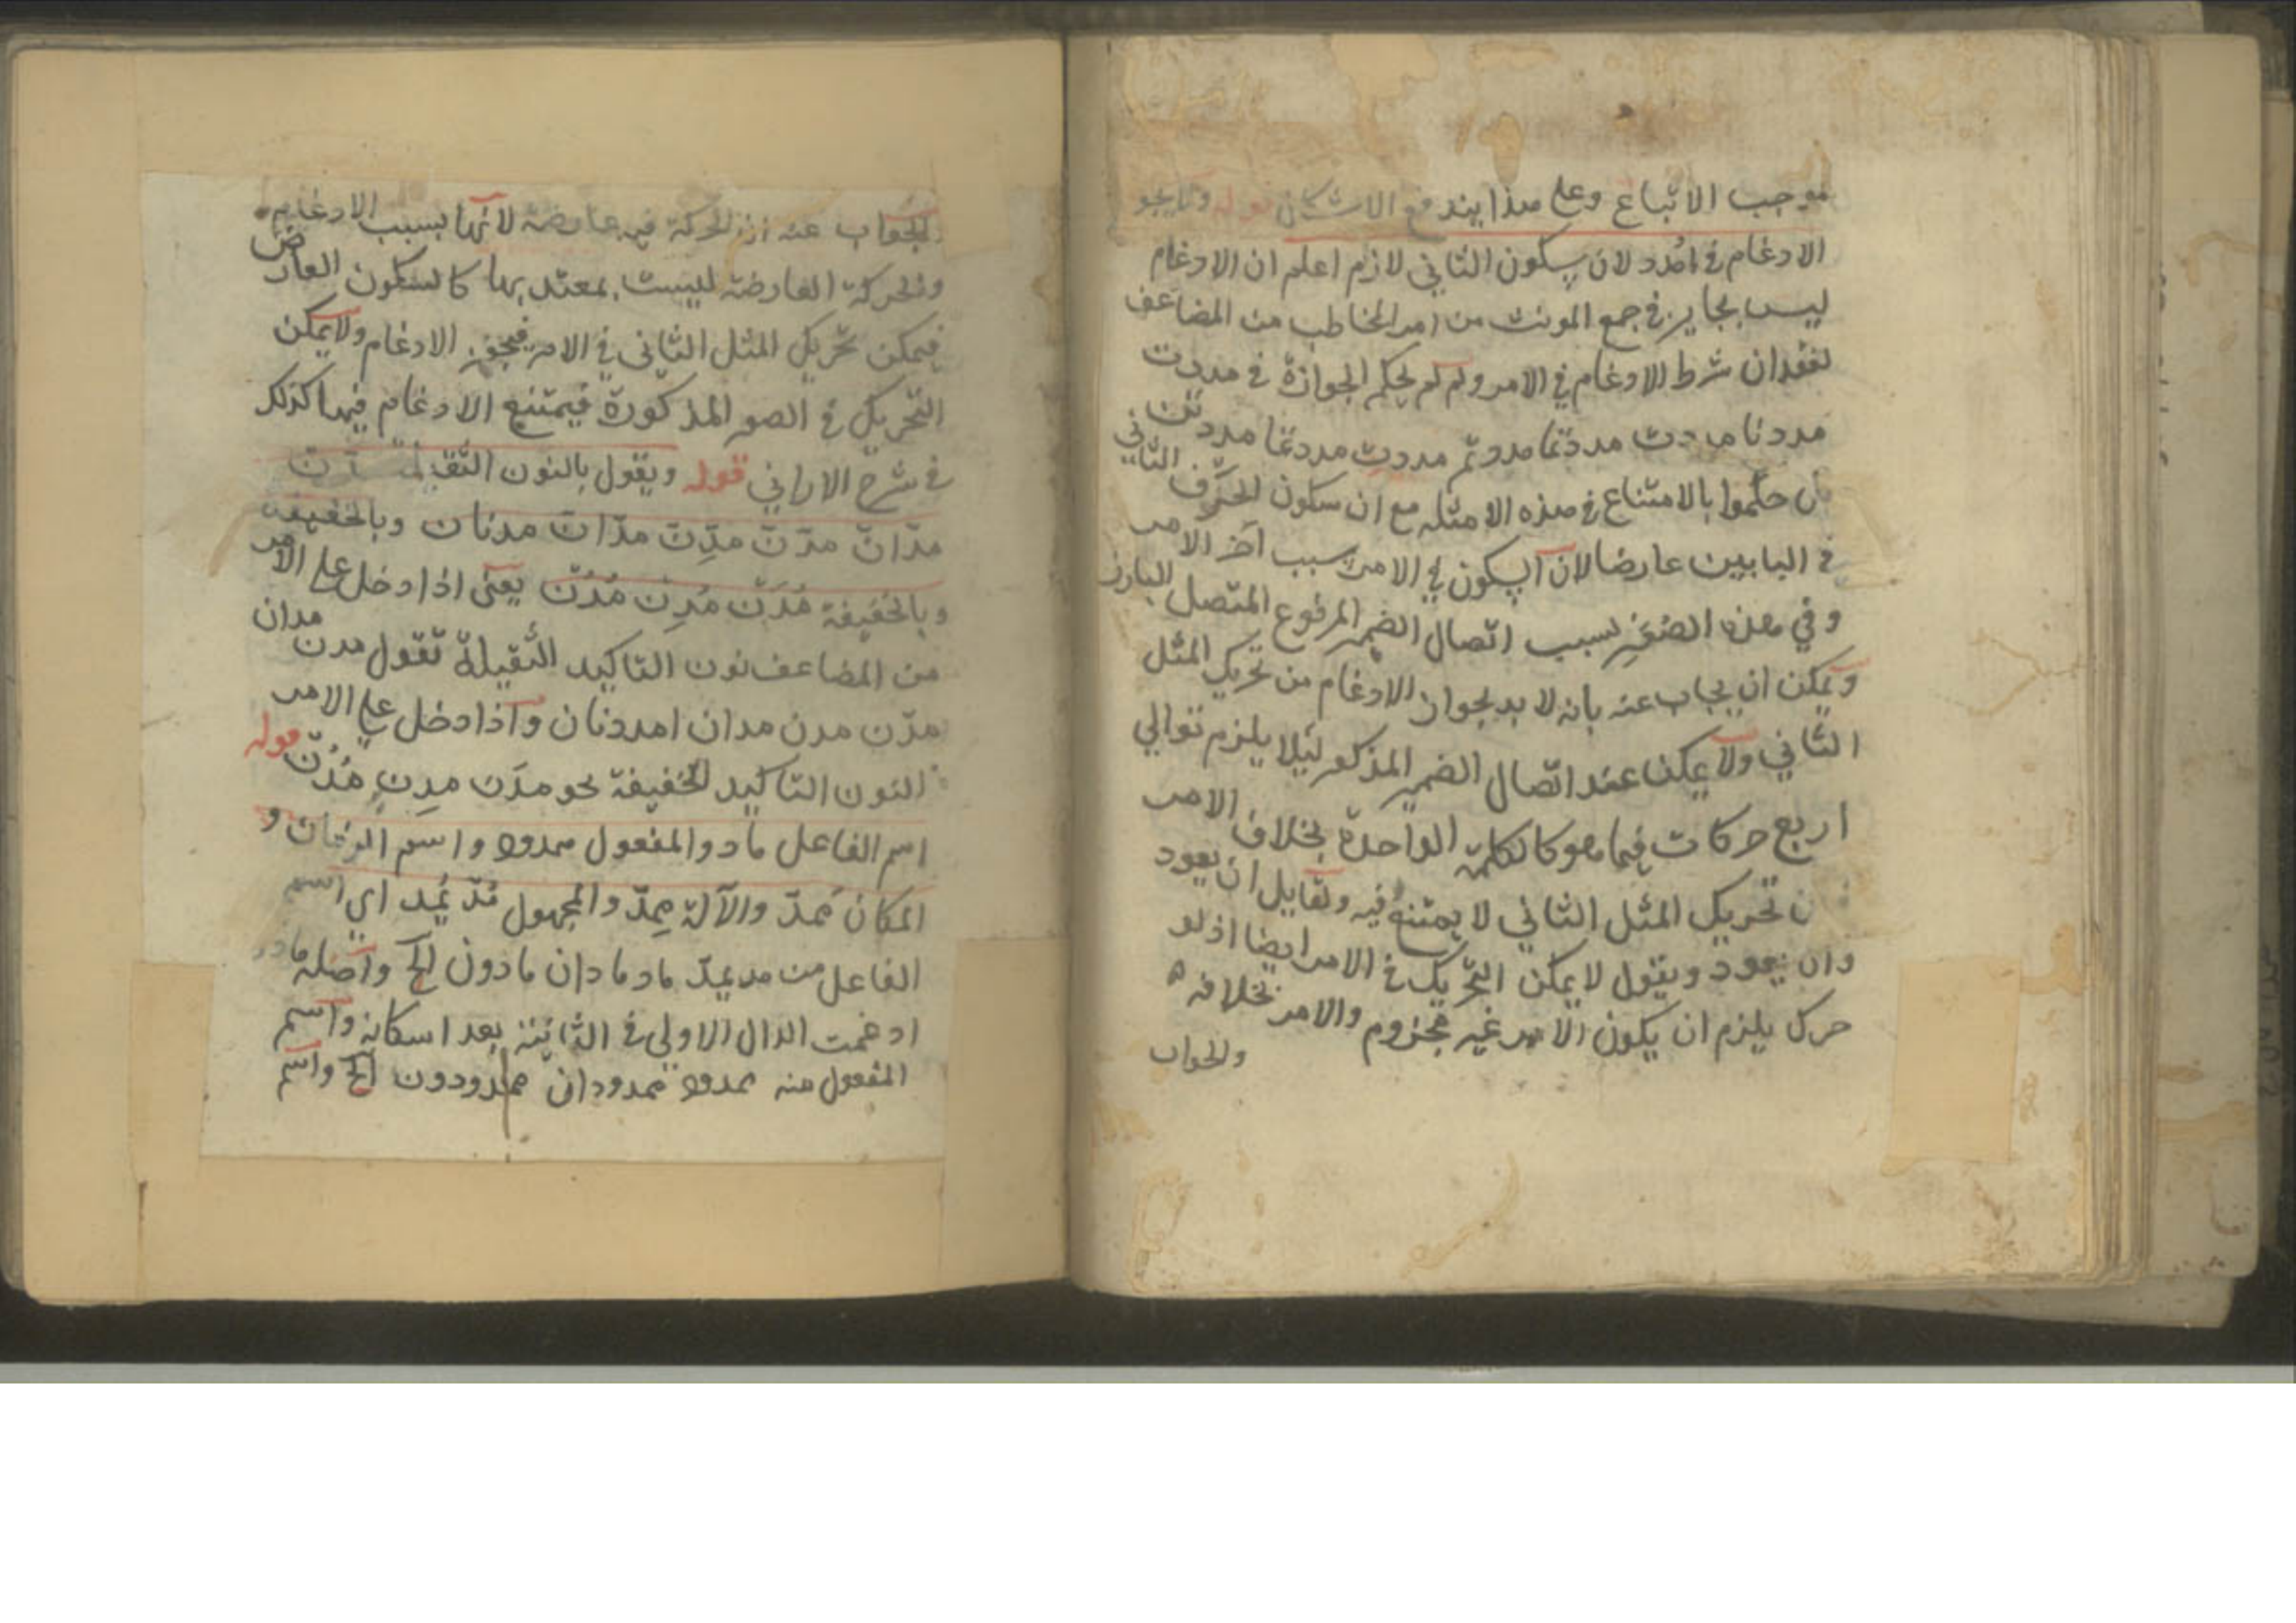 موجب الاتباع وعلى هذا يندفع الاشكال قوله ولا يجو
الادغام في امدد لان سكون الثاني لازم اعلم ان الادغام
ليس بجايز في جمع المونث من امر المخاطب من المضاعف
لفقدان شرط الادغام في الامر ولم لم يحكم الجوازة في مددت
مددنا مددت مددتما مددتم مددت مددتما مددتن
بان حكموا بالامتناع في هذه الامثله مع ان سكون الحرف الثاني
في البابين عارضا لان السكون في الامر بسبب آخر الامر
وفي هذه الصور بسبب اتصال الضمير المرفوع المتصل البارز
ويمكن ان يجاب عنه بانه لا بد لجواز الادغام من تحريك المثل
الثاني ولا يمكن عند اتصال الضمير المذكور ليلا يلزم توالي
اربع حركات فيما هو كالكلمة الواحدة بخلاف الامر
ن تحريك المثل الثاني لا يمتنع فيه ولقايل ان يعود
وان يعود ويقول لا يمكن التحريك في الامر ايضا اذ لو
حرك يلزم ان يكون الامر غير مجزوم والامر بخلافه
والجواب
والجواب عنه ان الحركة فيه عارضة لانها بسبب الادغام
والحركة العارضة ليست بمعتد بها كالسكون العارض
فيمكن تحريك المثل الثاني في الامر فيجوز الادغام ولا يمكن
التحريك في الصور المذكورة فيمتنع الادغام فيها كذلك
في شرح الاراني قوله ويقول بالنون الثقيلة مدن
مدّانّ مدّنّ مدِّنّ مدّانّ مدنان وبالخفيفة
وبالخفيفة مُدَّن مُدِن مُدُّن يعنى اذا دخل على الامر
من المضاعف نون التاكيد الثقيلة تقول مدن مدان
مدّن مدن مدان امددنان واذا دخل على الامر
النون التاكيد الخفيفة نحو مدَن مدِن مُدُّن قوله
اسم الفاعل ماد والمفعول ممدود واسم الزمان و
المكان ممدّ والآلة مِمدّ والمجهول مُدّ يُمد اي اسم
الفاعل من مد يمدّ ماد مادان مادون الخ واصله مادد
ادغمت الدال الاولى في الثانية بعد اسكانه واسم
المفعول منه ممدود ممدودان ممدودون الخ واسم